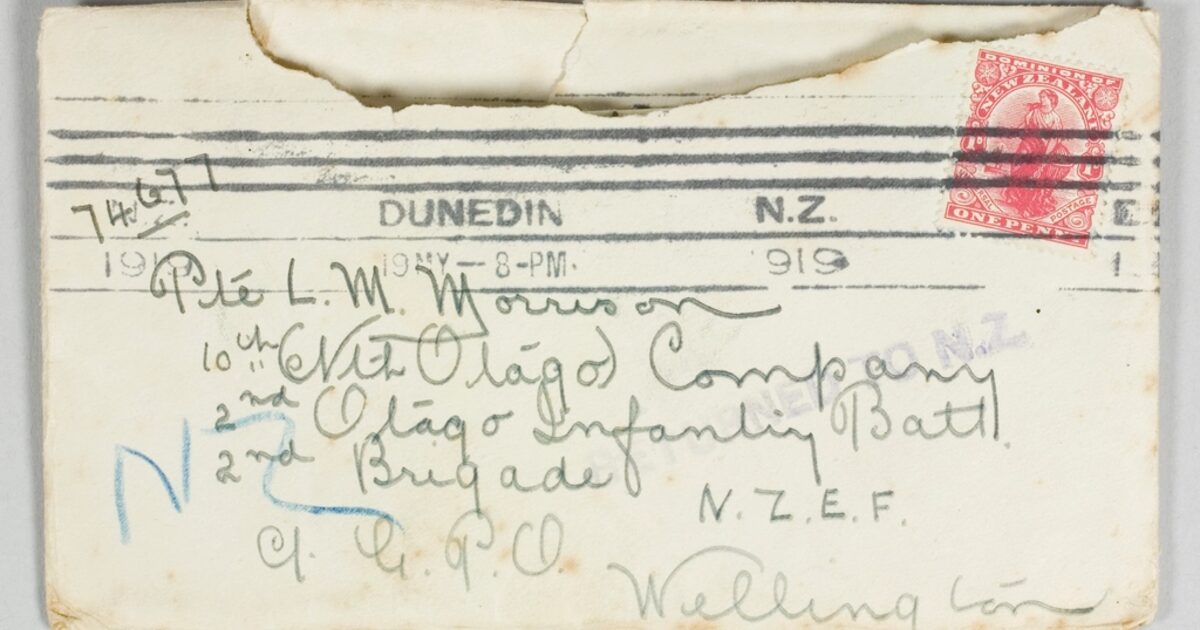 DOMINION OF
NEW ZEALAND
UNIVERSAL POSTAGE
ONE PENNY
74677
DUNEDIN N.Z.
1919 19 MY — 8-PM. 919
Pte L. M. Morrison
10th (Nth Otago) Company
RETURNED TO N.Z.
2nd Otago Infantry Batt.
2nd Brigade
N.Z.E.F.
NZ
G.P.O.
Wellington